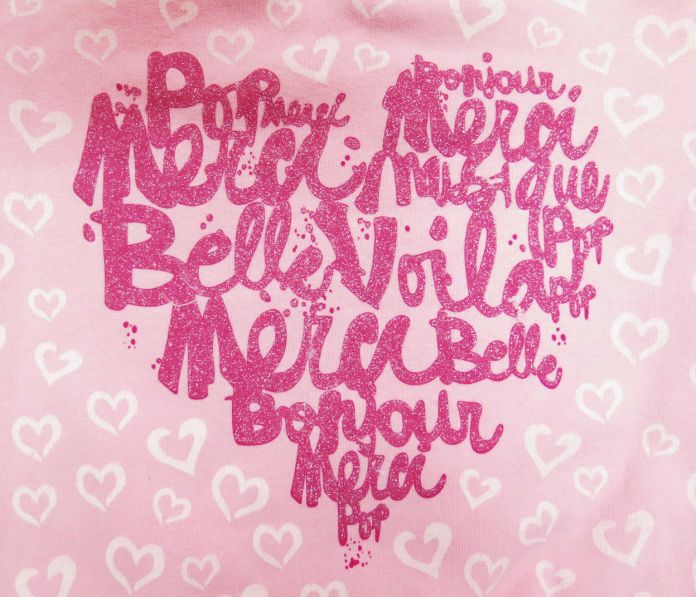 Pop merci Bonjour
Merci Merci
musique
Belle Voila Pop
Pop
Merci Belle
Bonjour
Merci
Pop